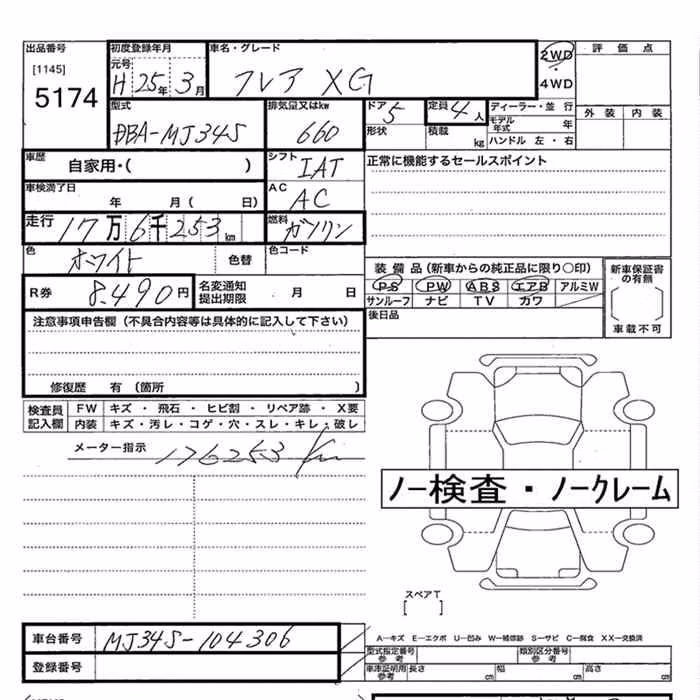 出品番号 初度登録年月 車名・グレード 2WD 評価点
[1145] 元号 ・
5174 H 25年 3月 フレア XG 4WD
型式 排気量又はkw ドア 5 定員 4人 ディーラー・並行 外装 内装
DBA-MJ34S 660 形状 積載 kg モデル年式 年
ハンドル 左・右
車歴 自家用・( ) シフト IAT 正常に機能するセールスポイント
車検満了日 年 月( 日) AC AC
走行 17万6千253km 燃料 ガソリン
色 ホワイト 色替 色コード
装備品(新車からの純正品に限り○印) 新車保証書の有無
R券 8,490円 名変通知提出期限 月 日 PS PW ABS エアB アルミW
サンルーフ ナビ TV カワ [ ]
注意事項申告欄(不具合内容等は具体的に記入して下さい) 後日品 車載不可
修復歴 有(箇所 )
検査員記入欄 FW キズ・飛石・ヒビ割・リペア跡・X要
内装 キズ・汚レ・コゲ・穴・スレ・キレ・破レ
メーター指示 176253 km
ノー検査・ノークレーム
スペアT
[ ]
A―キズ E―エクボ U―凹み W―補修跡 S―サビ C―腐食 XX―交換済
車台番号 MJ34S-104306 型式指定番号 参考 類別区分番号 参考
登録番号 車庫証明用 参考 長さ cm 幅 cm 高さ cm